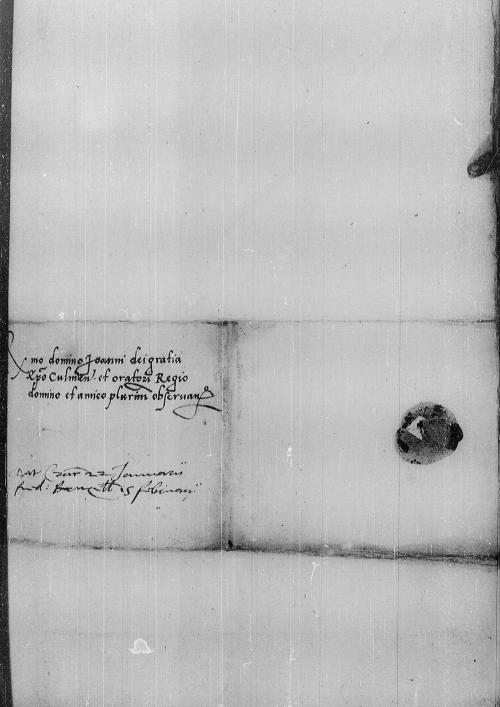 Xmo domino Joanni dei gratia
Xpo Culmen. et oratori Regio
domino et amico plurim observan
22 Januarii
15 februarii